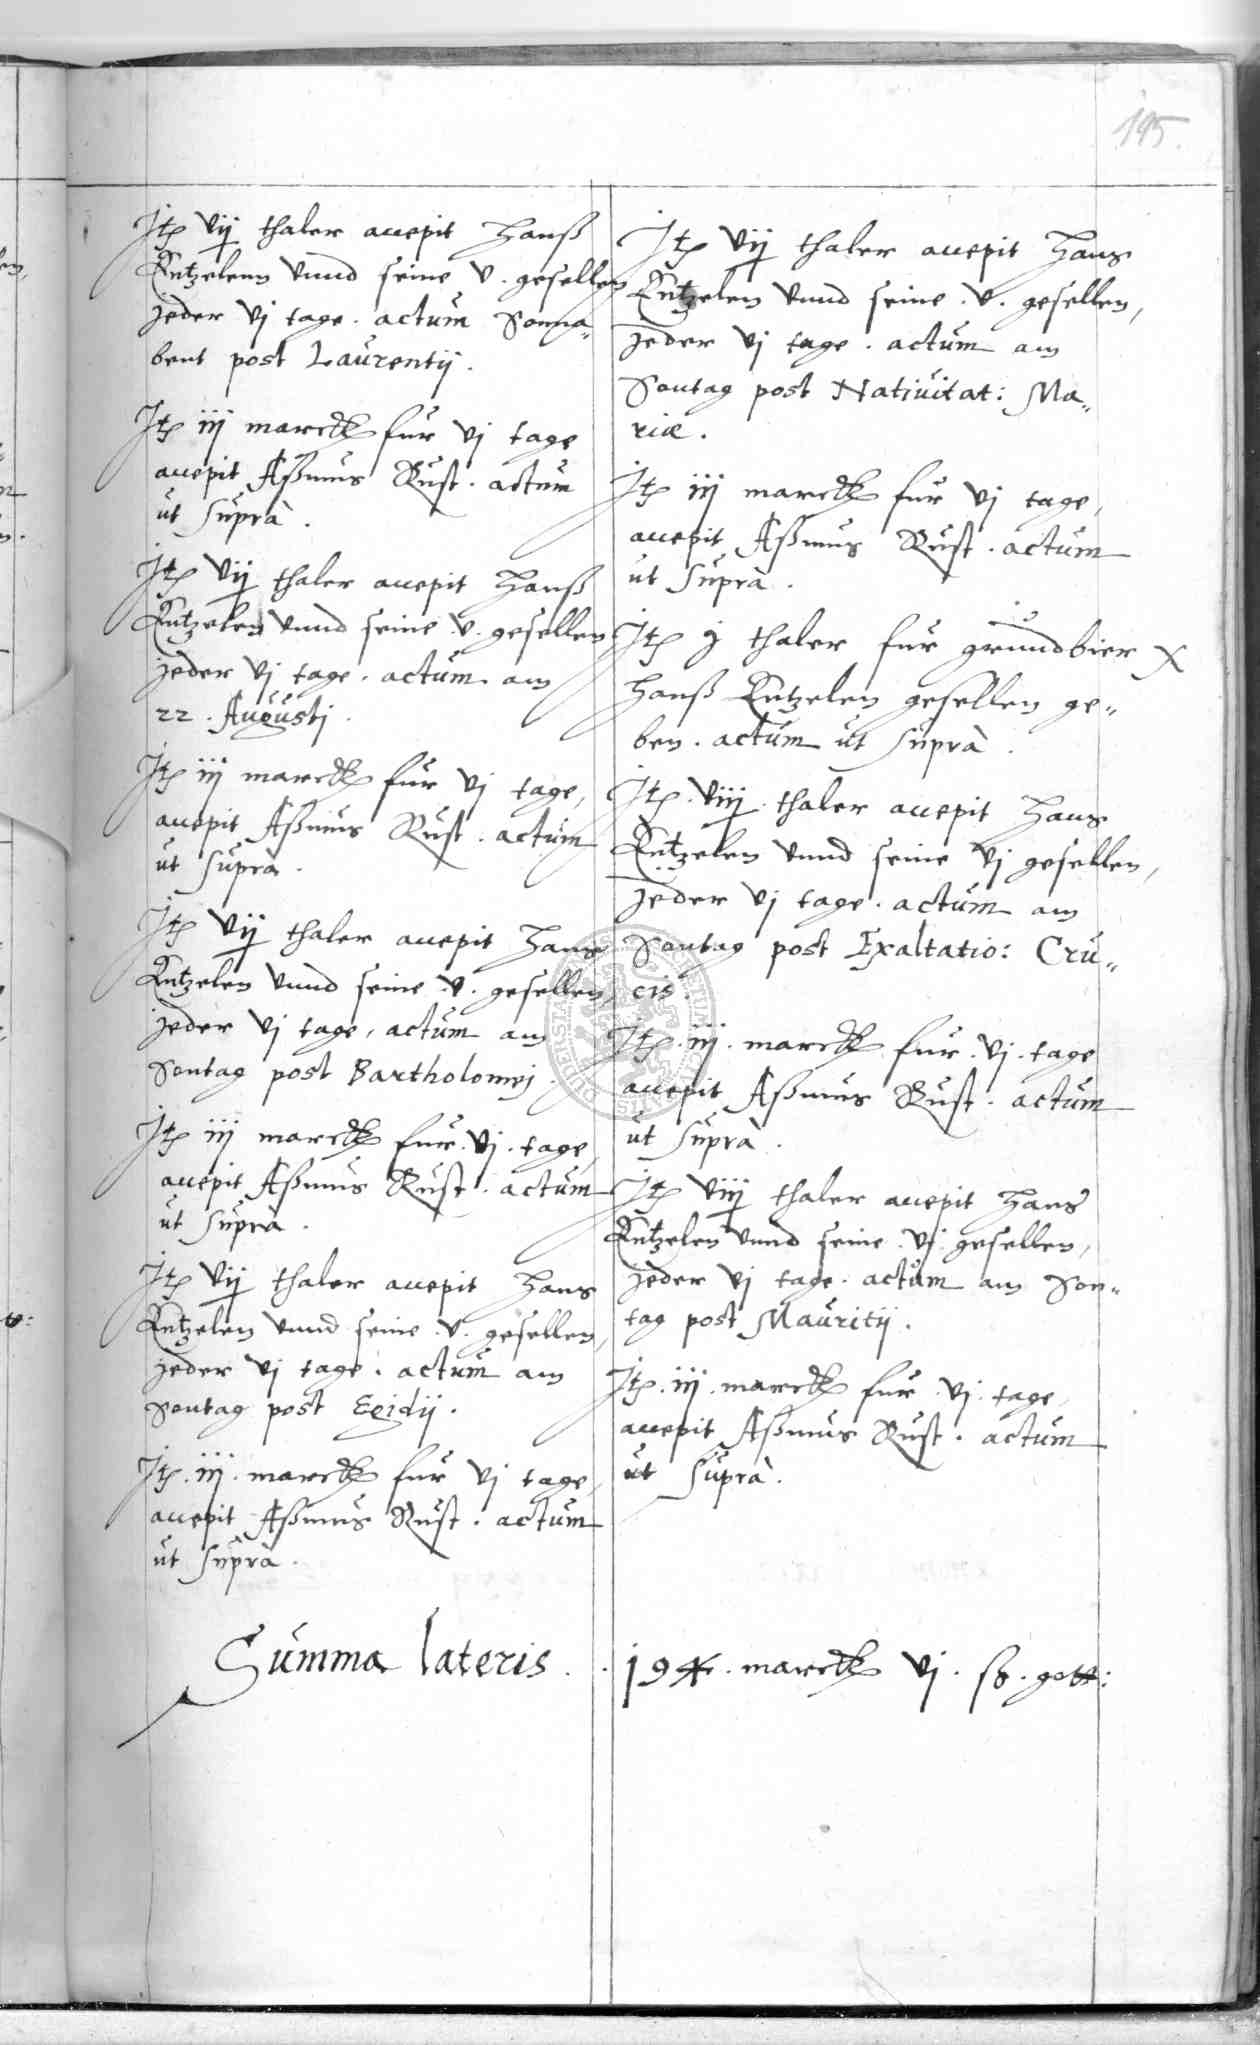 195.
Itẽ vij thaler accepit Hanß
Entzelenn vnnd seine v. gesellen
jeder vj tage. actum Sonna„
bent post Laurentij.
Itẽ iij marck fur vj tage
accepit Aßmus Rust. actum
ut suprà.
Itẽ vij thaler accepit Hanß
Entzelen vnnd seine .v. gesellen
jeder vj tage. actum am
22. Augustj.
Itẽ iij marck fur vj tage,
accepit Aßmus Rust. actum
ut suprà.
Itẽ vij thaler accepit Hans
Entzelen vnnd seine .v. gesellen,
jeder vj tage, actum am
Sontag post Bartholomej.
Itẽ iij marck fur .vj. tage,
accepit Aßmus Rust. actum
ut suprà.
Itẽ vij thaler accepit Hans
Entzelen vnnd seine .v. gesellen,
jeder vj tage. actum am
Sontag post Egidij.
Itẽ .iij. marck fur vj tage,
accepit Aßmus Rust. actum
ut suprà.
Itẽ vij thaler accepit Hans
Entzelen vnnd seine .v. gesellen,
jeder vj tage. actum am
Sontag post Natiuitat: Ma„
riæ.
Itẽ iij marck fur vj tage,
accepit Aßmus Rust. actum
ut suprà.
Itẽ j thaler fur grundbier X
Hanß Entzelen gesellen ge„
ben. actum ut suprà.
Itẽ .viij. thaler accepit Hans
Entzelen vnnd seine vj gesellen,
jeder vj tage. actum am
Sontag post Exaltatio: Cru„
cis.
Itẽ .iij. marck fur .vj. tage
accepit Aßmus Rust. actum
ut suprà.
Itẽ viij thaler accepit Hans
Entzelen vnnd seine .vj. gesellen,
jeder vj tage. actum am Son„
tag post Mauritij.
Itẽ .iij. marck fur .vj. tage,
accepit Aßmus Rust. actum
ut suprà.
Summa lateris . . 194. marck vj. ß. gott: